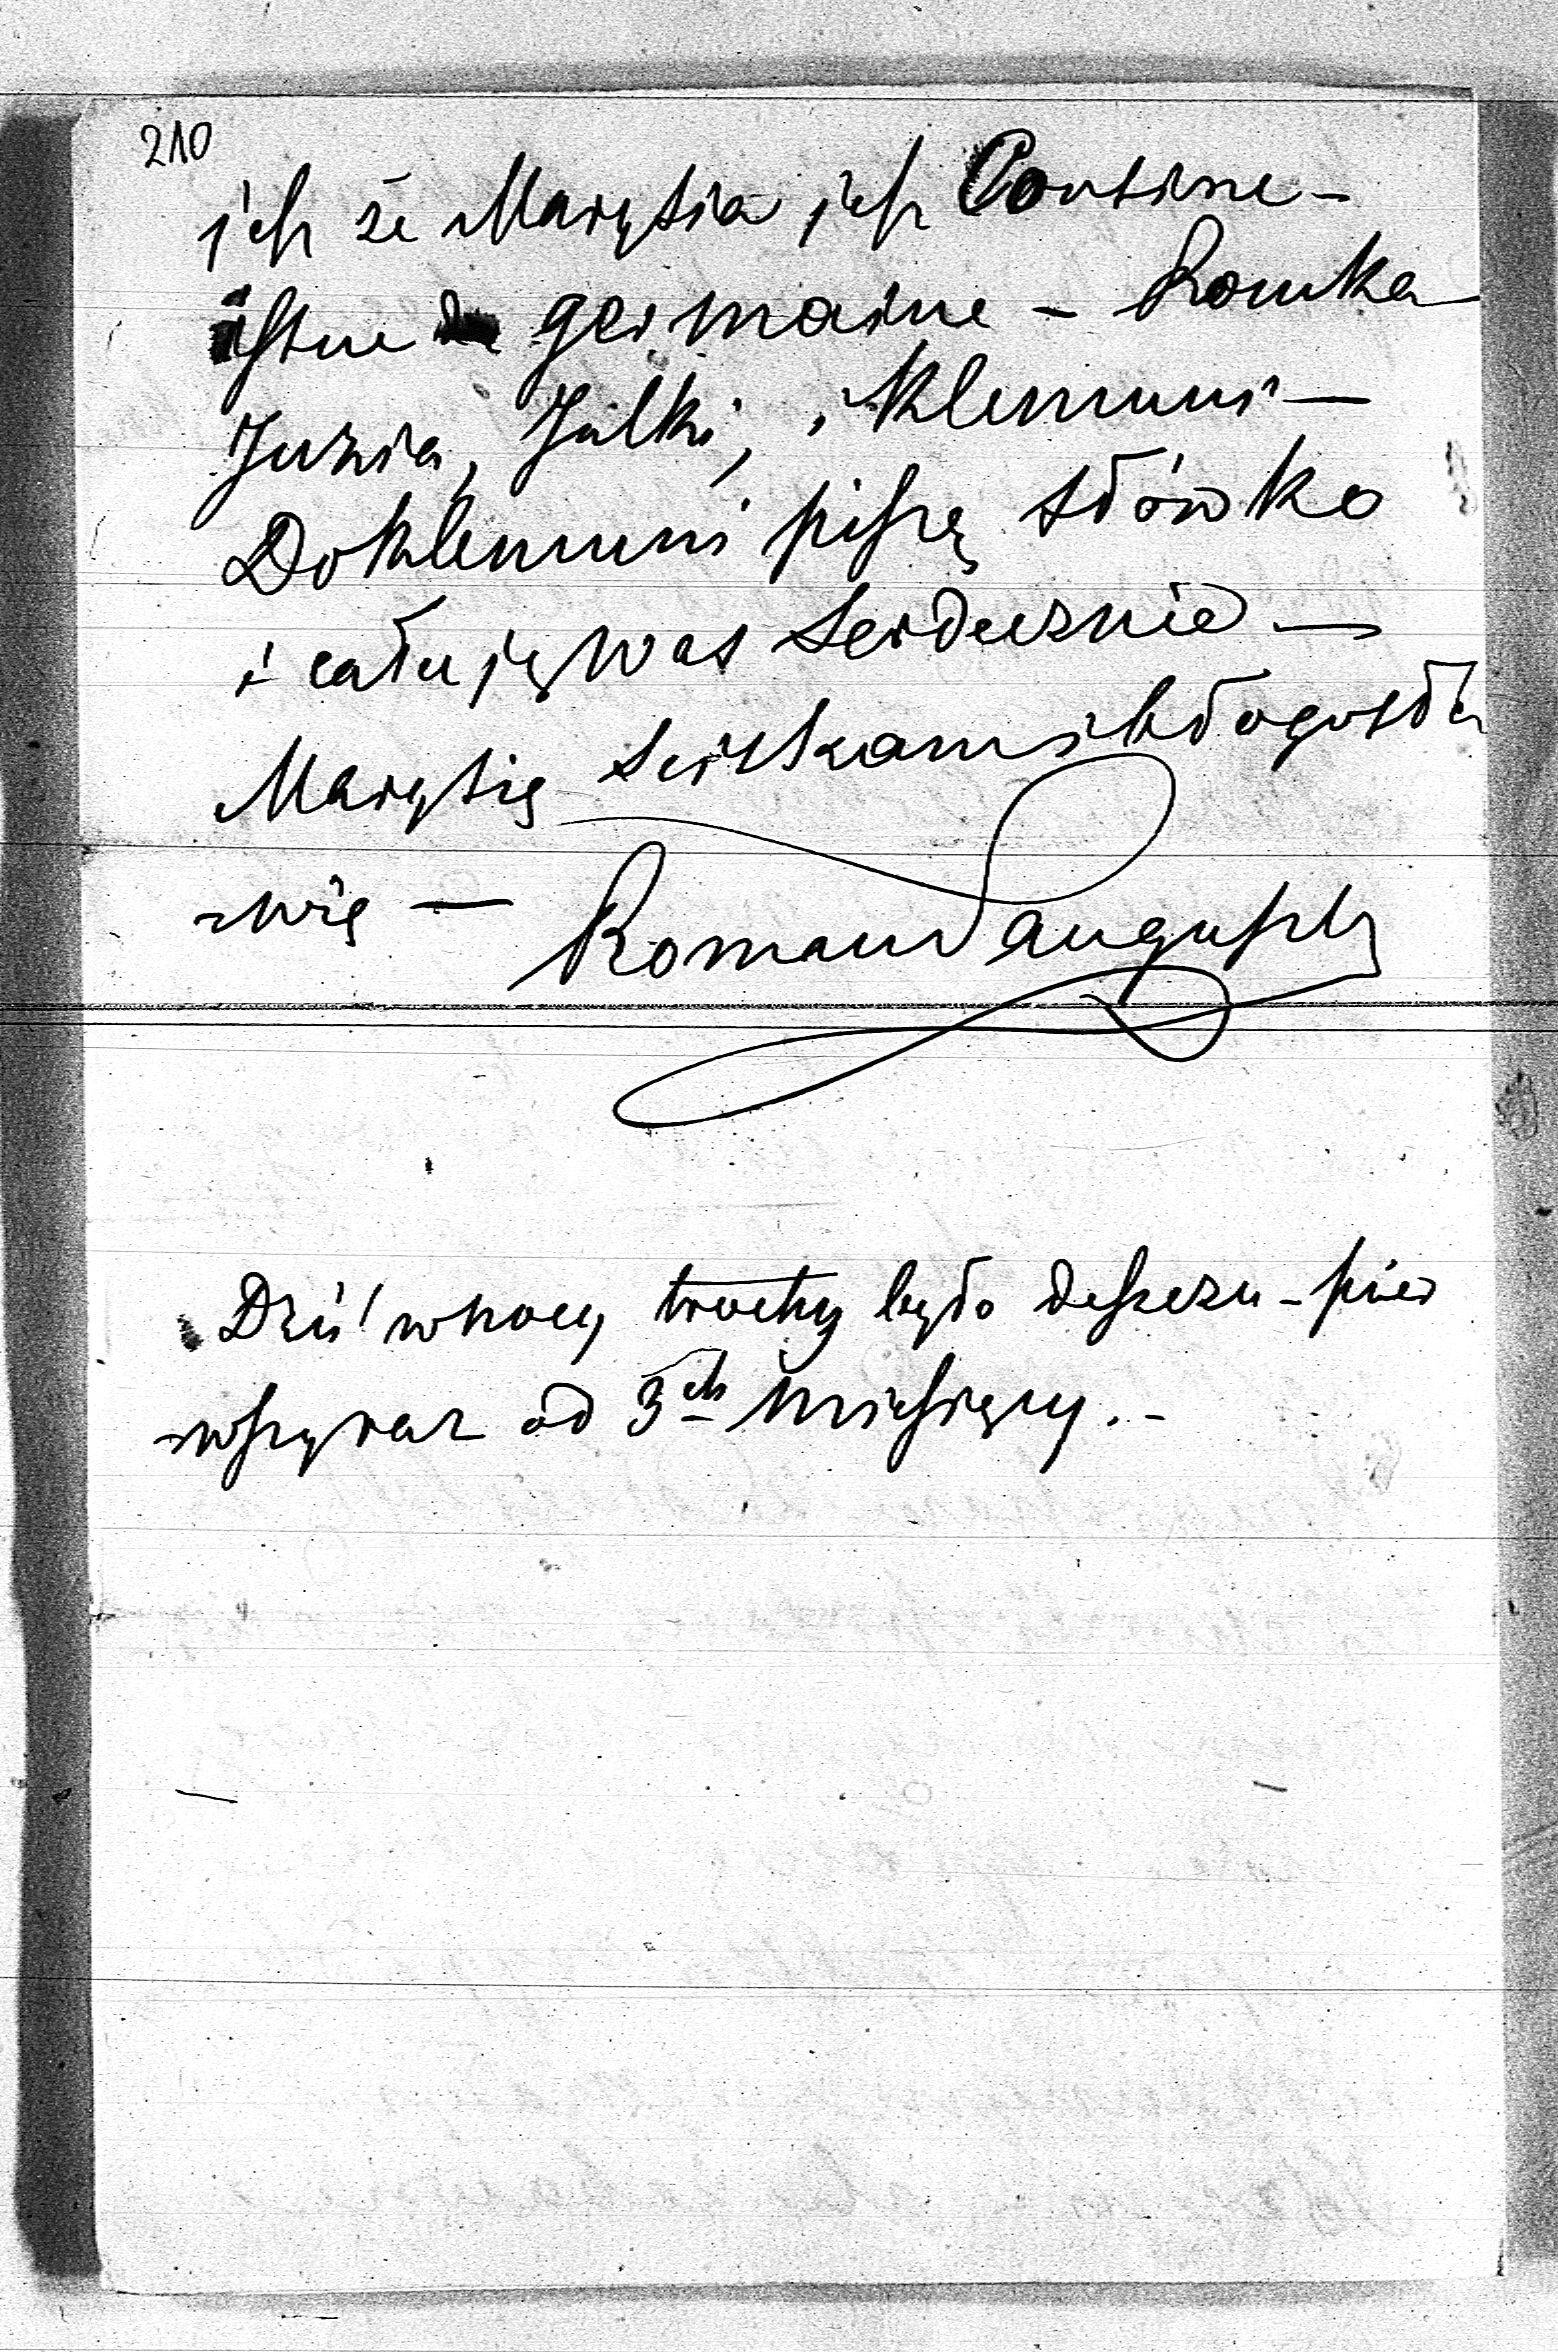 210
jest że Marysia jest Cousine –
issue germaine – Romka
Juzia, Julki, i Klemuni –
Do Klemuni piszę słówko
i całuję Was serdecznie –
Marysię ściskam i błogosła
wię – Roman Sanguszko
Dziś w nocy trochę było deszczu – pier
wszy raz od 3ch miesięcy. –